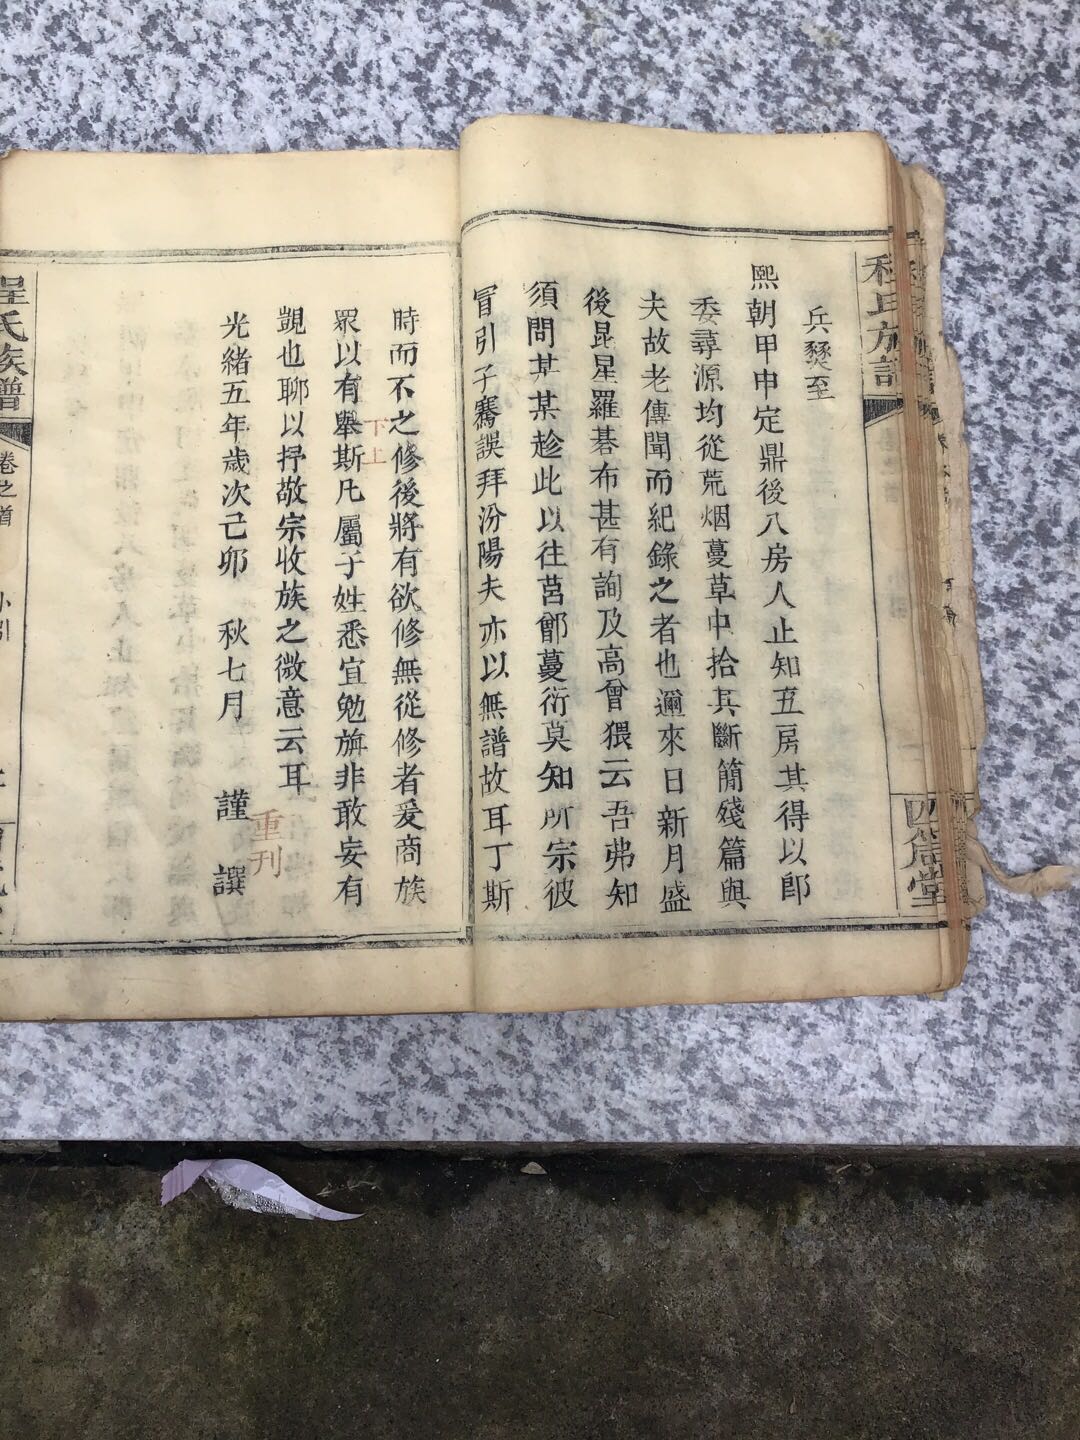 程氏族譜
四箴堂
兵燹至
熙朝甲申定鼎後八房人止知五房其得以郎
委尋源均從荒烟蔓草中拾其斷簡殘篇與
夫故老傳聞而紀錄之者也邇來日新月盛
後昆星羅碁布甚有詢及高曾猥云吾弗知
須問某某趁此以往莒鄫蔓衍莫知所宗彼
冒引子騫誤拜汾陽夫亦以無譜故耳丁斯
時而不之修後將有欲修無從修者爰商族
眾以有舉斯凡屬子姓悉宜勉旃非敢妄有
下上
覬也聊以抒敬宗收族之微意云耳
重刊
光緒五年歲次己卯 秋七月 謹 譔
程氏族譜
卷之首
小引